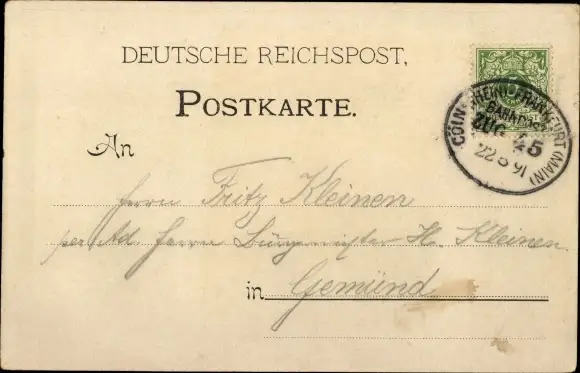 DEUTSCHE REICHSPOST,
POSTKARTE.
An
Herrn Fritz Kleinen
per Ad. Herrn Bürgermeister H. Kleinen
in Gemünd
CÖLN (RHEIN)-FRANKFURT (MAIN)
BAHNPOST
ZUG 45
22 8 91